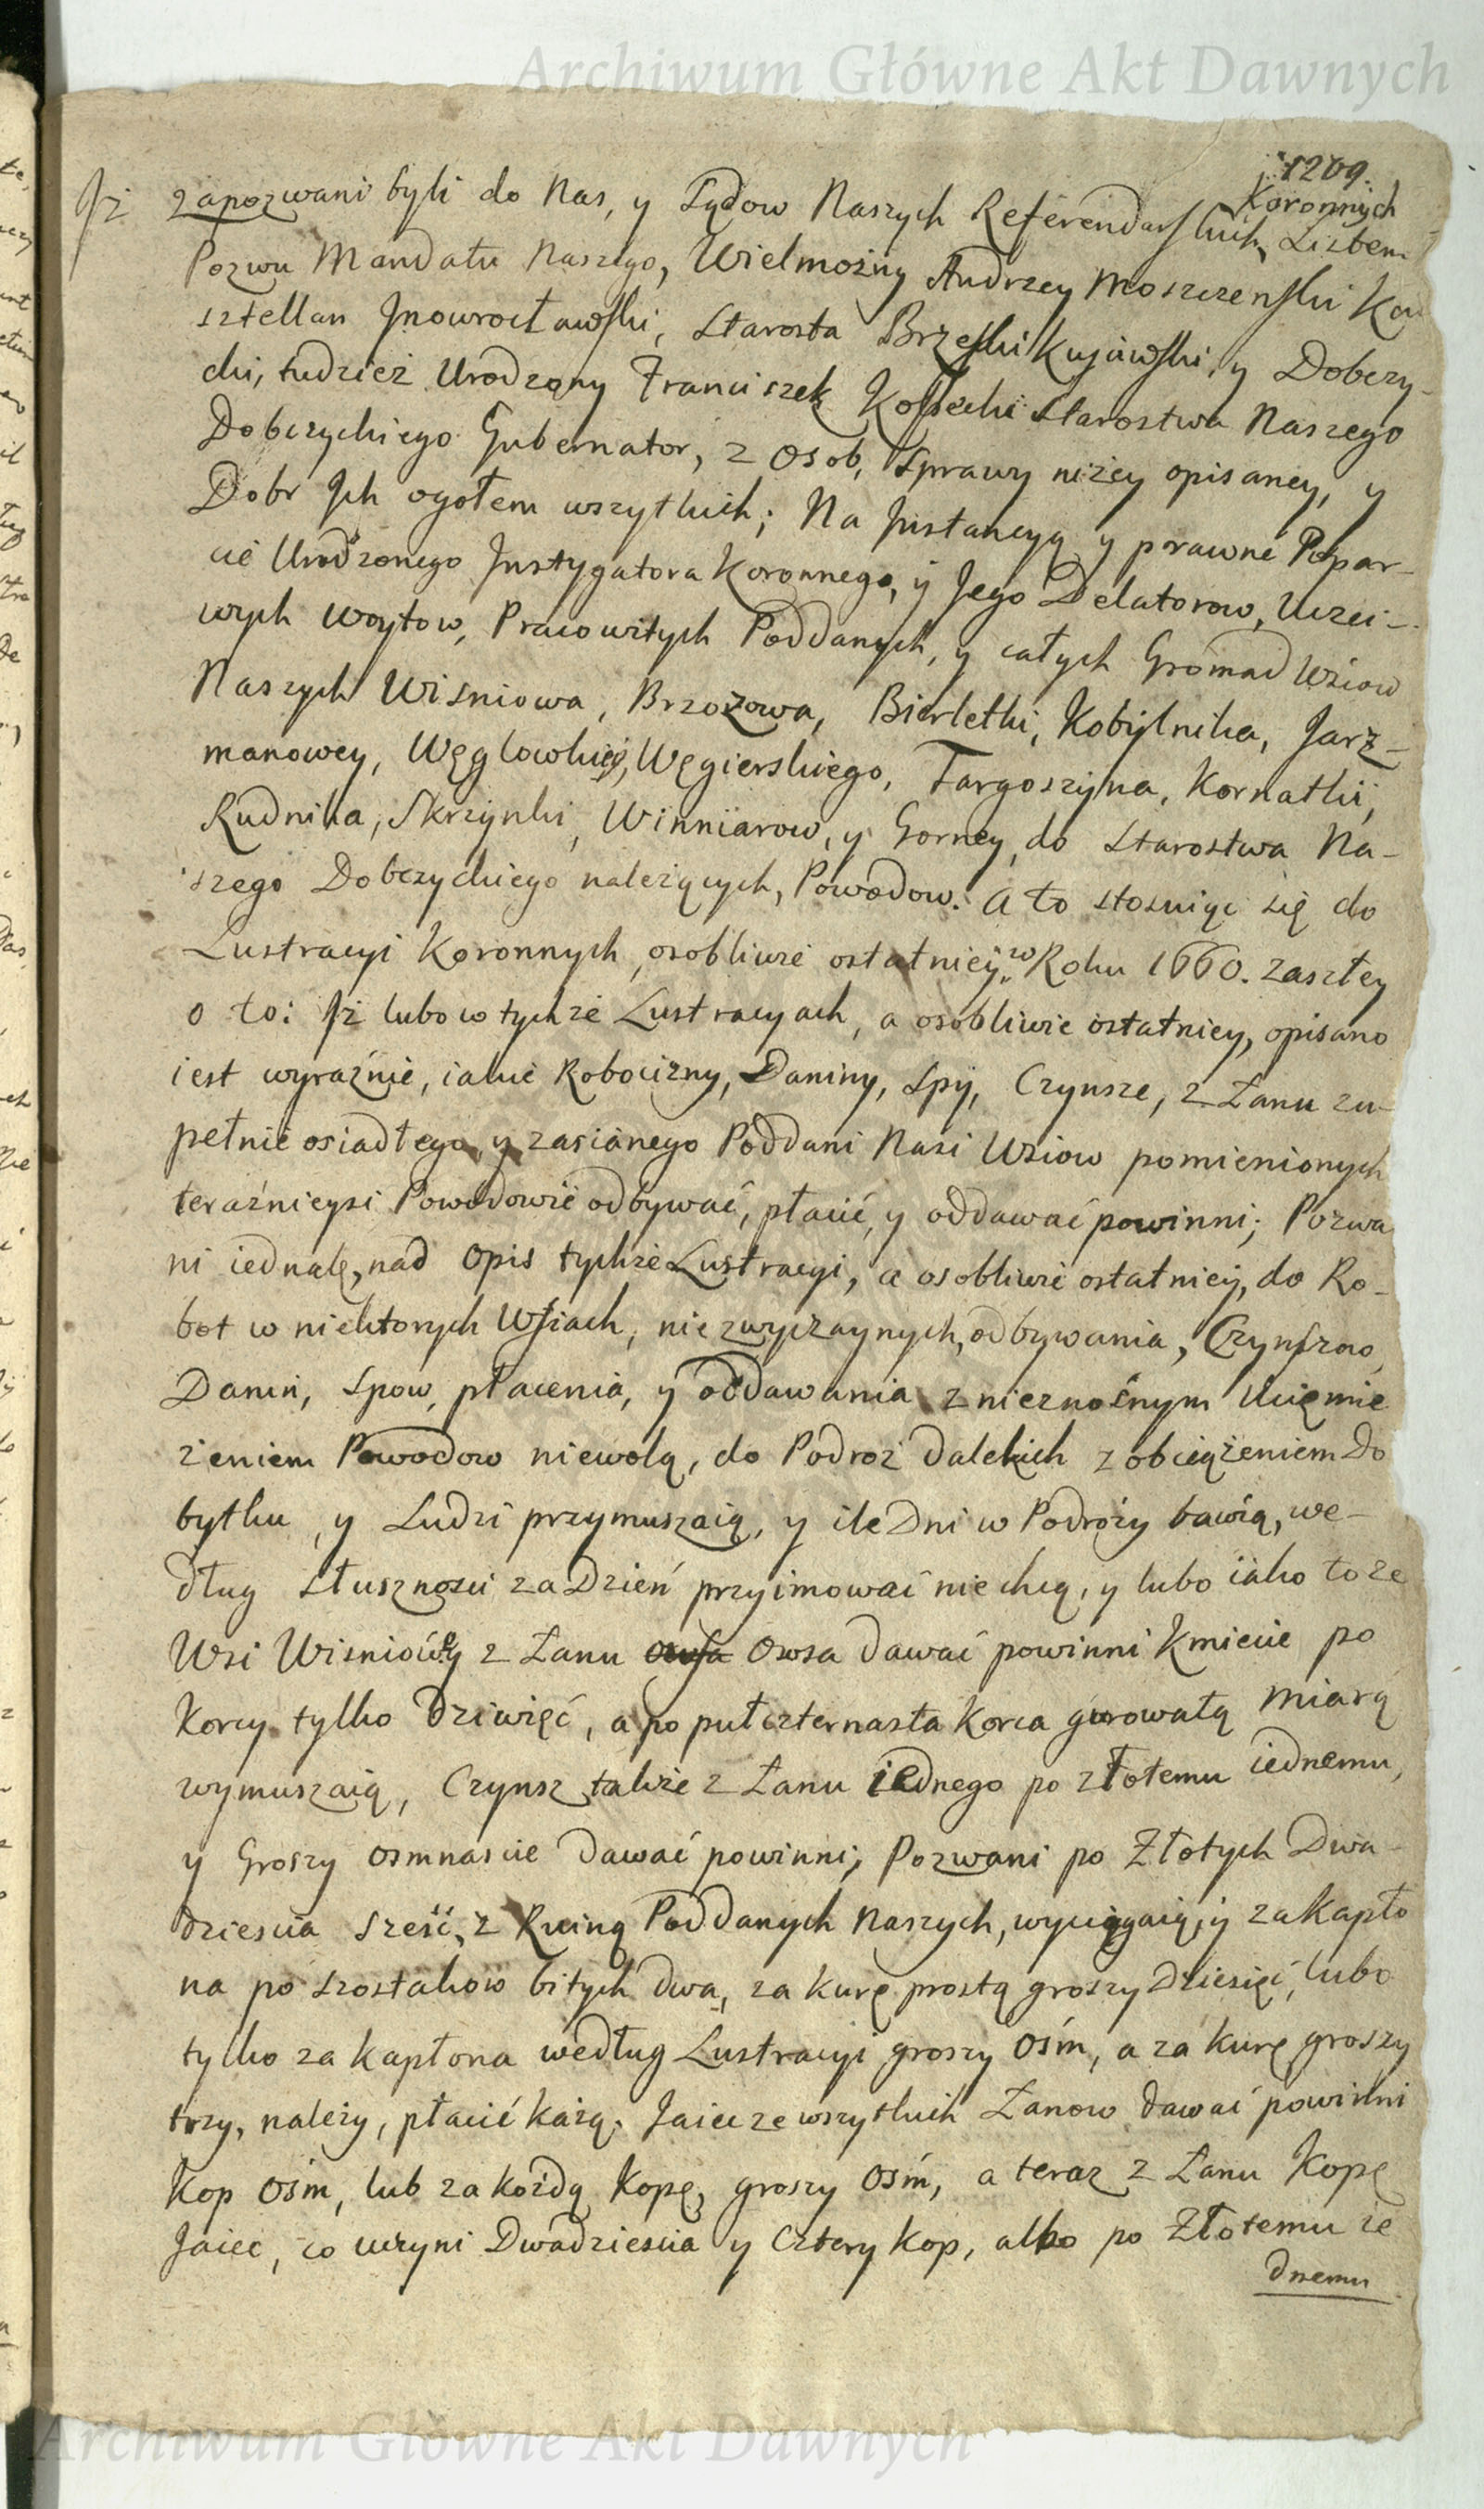 Archiwum Główne Akt Dawnych
1209.
Iż zapozwani byli do Nas, y Sądow Naszych Referendarskich Koronnych Listem
Pozwu Mandatu Naszego, Wielmożny Andrzey Moszczenski Ka
sztellan Jnowrocławski, Starosta Brzeski Kujawski, y Dobczy-
cki, tudzież Urodzony Franciszek Kossecki Starostwa Naszego
Dobczyckiego Gubernator, z Osob, Sprawy niżey opisaney, y
Dobr Jch ogołem wszytkich; Na Jnstancyą y prawne Popar-
cie Urodzonego Jnstygatora Koronnego, y Jego Delatorow, Uczci-
wych Woytow, Pracowitych Poddanych, y całych Gromad Wsiow
Naszych Wisniowa, Brzozowa, Bierletki, Kobylnika, Jarz-
manowey, Węglowkiey, Węgierskiego, Targoszyna, Kornatki,
Rudnika, Skrzynki, Winniarow, y Gorney, do Starostwa Na-
szego Dobczyckiego należących, Powodow. A to stosuiąc się do
Lustracyi Koronnych, osobliwie ostatniey w Roku 1660. zaszłey
o to: Iż lubo w tychże Lustracyach, a osobliwie ostatniey, opisano
iest wyraźnie, iakie Robocizny, Daniny, Spy, Czynsze, z Łanu zu-
pełnie osiadłego, y zasianego Poddani Nasi Wsiow pomienionych
teraźnieysi Powodowie odbywać, płacić, y oddawać powinni; Pozwa
ni iednak, nad Opis tychże Lustracyi, a osobliwie ostatniey, do Ro-
bot w niektorych Wsiach, niezwyczaynych, odbywania, Czynszow,
Danin, Spow, płacenia, y oddawania z nieznośnym Uciemię
żeniem Powodow niewolą, do Podroż dalekich z obciążeniem Do
bytku, y Ludzi przymuszaią, y ile Dni w Podroży bawią, we-
dług Słusznosci za Dzień przyimować nie chcą, y lubo iako to ze
Wsi Wisniowy z Łanu Owsa Owsa dawać powinni Kmiecie po
Korcy tylko dziewięć, a po pułczternasta Korca gurowatą Miarą
wymuszaią, Czynsz także z Łanu iednego po złotemu iednemu,
y Groszy osmnascie dawać powinni; Pozwani po Złotych Dwa-
dziescia sześć, z Ruiną Poddanych Naszych, wyciągaią, y za Kapło
na po szostakow bitych dwa, za kurę prostą groszy dziesięć, lubo
tylko za Kapłona według Lustracyi groszy Ośm, a za kurę groszy
trzy, należy, płacić każą. Jaiec ze wszytkich Łanow dawać powinni
Kop Ośm, lub za każdą Kopę, groszy Ośm, a teraz z Łanu Kopę
Jaiec, co uczyni Dwadziescia y Cztery Kop, albo po Złotemu ie
dnemu
Archiwum Główne Akt Dawnych